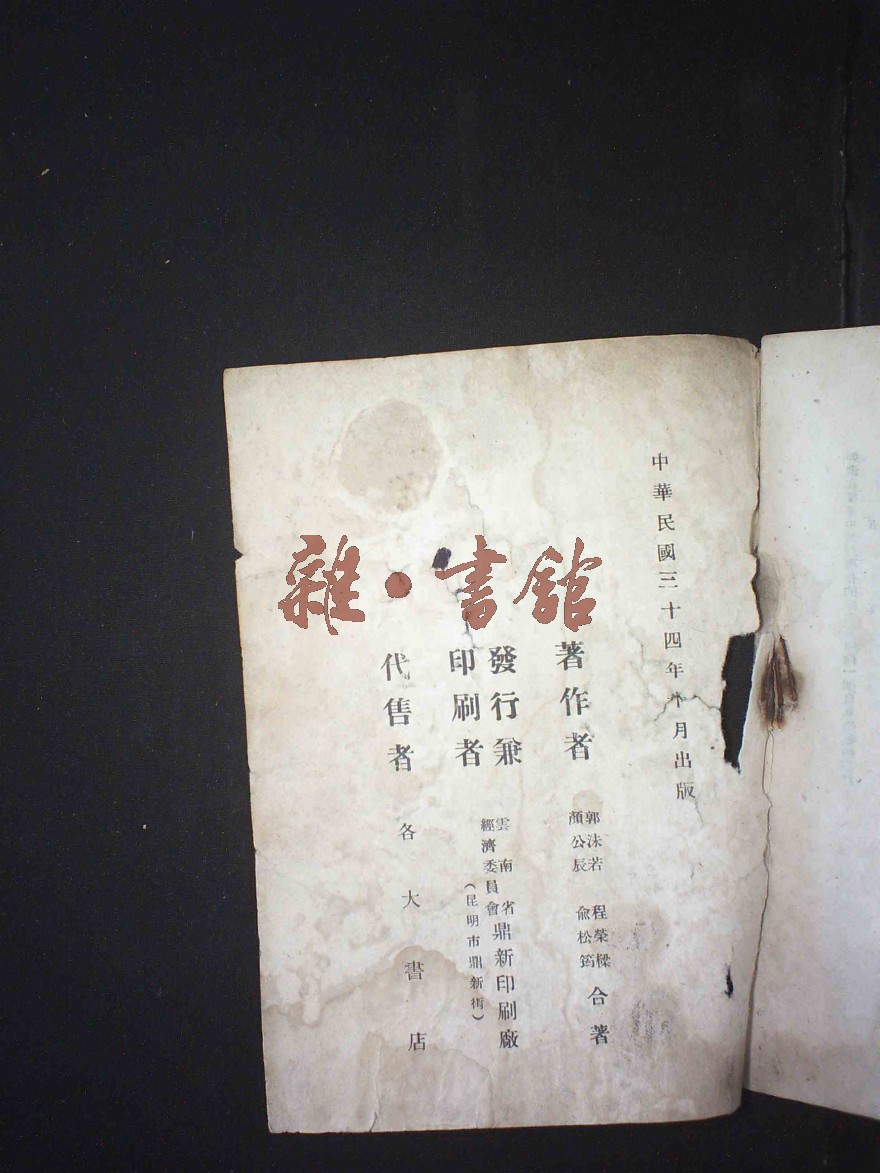 中華民國三十四年十月出版
著作者 郭沫若 程榮樑 顏公辰 俞松筠 合著
發行兼印刷者 雲南省經濟委員會鼎新印刷廠
(昆明市鼎新街)
代售者 各大書店
雜·書舘